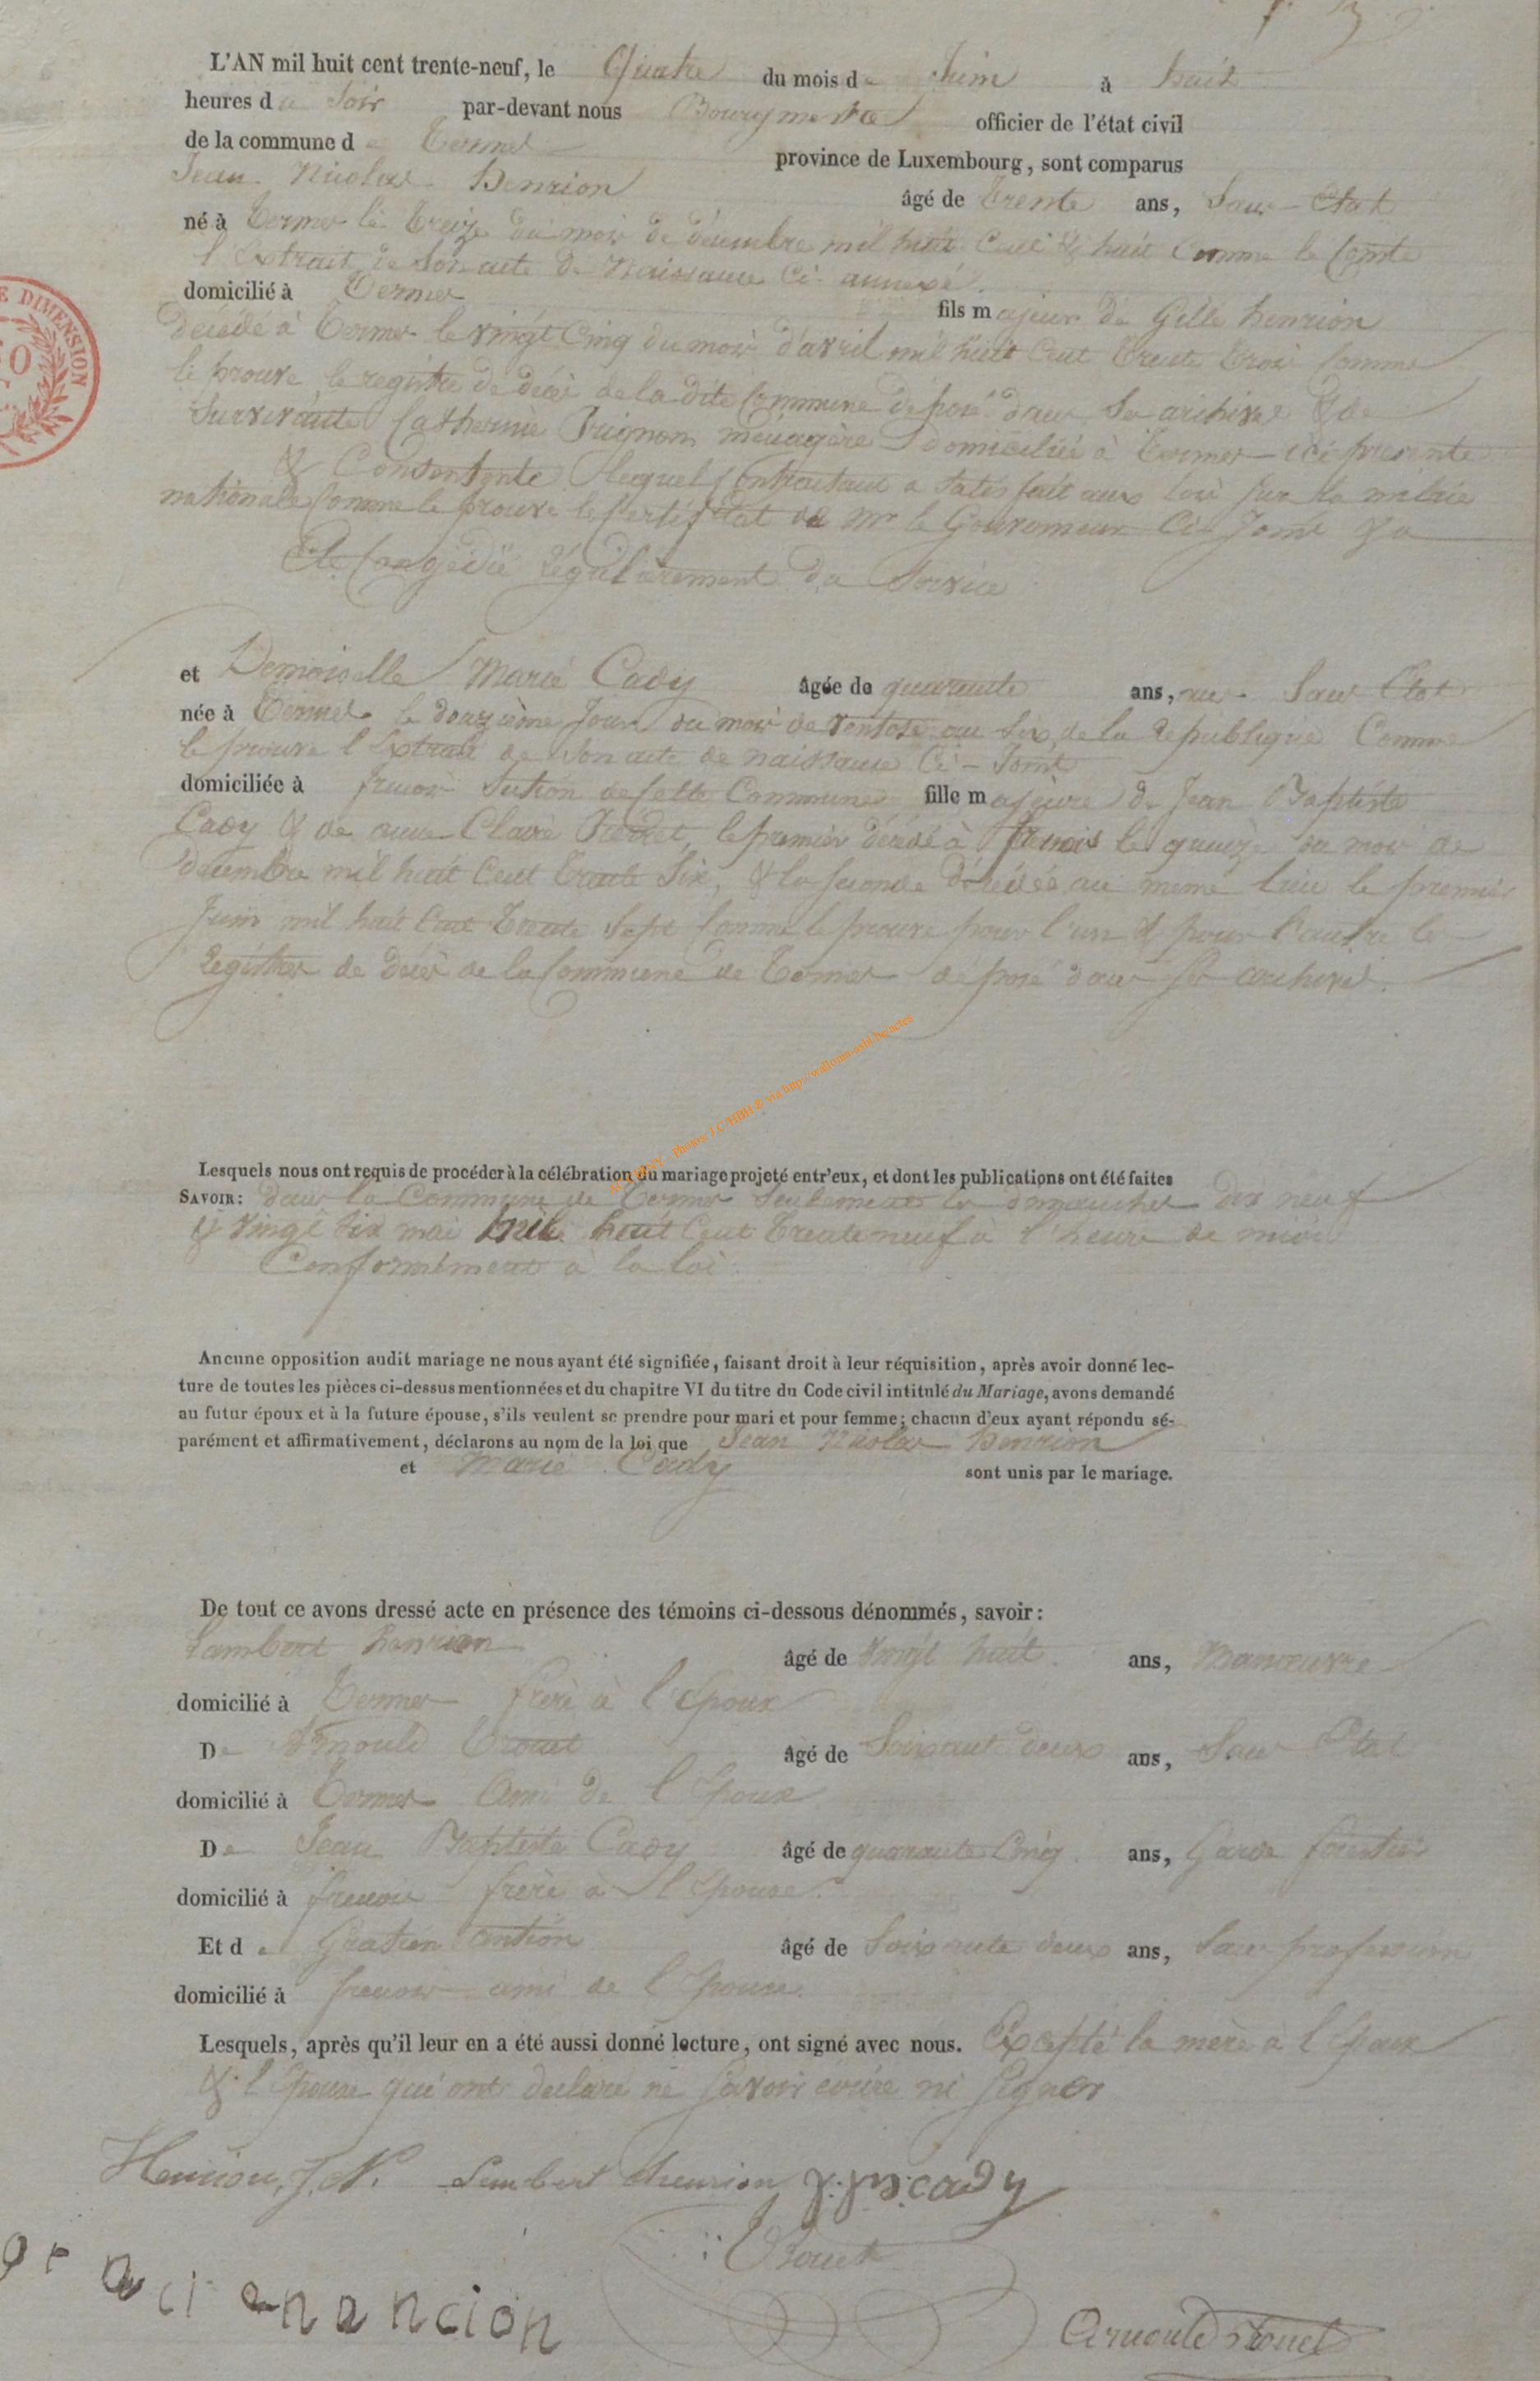 L'AN mil huit cent trente-neuf, le Quatre du mois de Juin à huit
heures du Soir par-devant nous Bourgmestre officier de l'état civil
de la commune de Termes province de Luxembourg, sont comparus
Jean Nicolas Henrion âgé de trente ans, Sans Etat
né à Termes le treize du mois de décembre mil huit cent & huit comme le Conste
l'Extrait de Son acte de Naissance Ci annexé.
domicilié à Termes fils majeur de Gille henrion
décédé à Termes le vingt Cinq du mois d'avril mil huit Cent trente trois Comme
le prouve le registre de décès de la dite Commune déposé dans Ses archives & de
Survivante Catherine ménagère domiciliée à Termes ici presente
& Consentante lequel Contractant a Satisfait aux lois Sur la milice
nationale Comme le prouve le Certificat de Mr le Gouverneur Ci-Joint & a
Eté Congédié régulièrement du Service
et Demoiselle Marie Cady âgée de quarante ans, Sans Etat
née à Termes le douzième Jour du mois de Ventose an Six de la République Comme
le prouve l'Extrait de Son acte de naissance Ci-Joint
domiciliée à frenois Section de Cette Commune fille majeure de Jean Baptiste
Cady & de Claire le premier décédé à frenois le quinze du mois de
décembre mil huit Cent trente Six, & la Seconde décédée au meme lieu le premier
Juin mil huit Cent trente Sept Comme le prouve pour l'un & pour l'autre le
Registres de décès de la Commune de Termes déposé dans Ses archives.
Lesquels nous ont requis de procéder à la célébration du mariage projeté entr'eux, et dont les publications ont été faites
SAVOIR: dans la Commune de Termes Seulement les dimanches dix neuf
& vingt Six mai mil huit Cent trente neuf à l'heure de midi
Conformément à la loi
Aucune opposition audit mariage ne nous ayant été signifiée, faisant droit à leur réquisition, après avoir donné lec-
ture de toutes les pièces ci-dessus mentionnées et du chapitre VI du titre du Code civil intitulé du Mariage, avons demandé
au futur époux et à la future épouse, s'ils veulent se prendre pour mari et pour femme; chacun d'eux ayant répondu sé-
parément et affirmativement, déclarons au nom de la loi que Jean Nicolas Henrion
et Marie Cady sont unis par le mariage.
De tout ce avons dressé acte en présence des témoins ci-dessous dénommés, savoir:
Lambert henrion âgé de vingt huit ans, Manœuvre
domicilié à Termes frere à l'Epoux
De Arnould Trouet âgé de Soixant deux ans, Sans Etat
domicilié à Termes Ami de l'Epoux
De Jean Baptiste Cady âgé de quarante Cinq ans, Garde forestier
domicilié à frenois frère à l'épouse.
Et de Gratien âgé de Soixante deux ans, Sans profession
domicilié à frenois ami de l'Epouse.
Lesquels, après qu'il leur en a été aussi donné lecture, ont signé avec nous. Excepté la mère à l'Epoux
& l'Epouse qui ont déclaré ne Savoir écrire ni Signer
Henrion, J. N. Lambert henrion j:B:cady
Trouet
Arnould Trouet